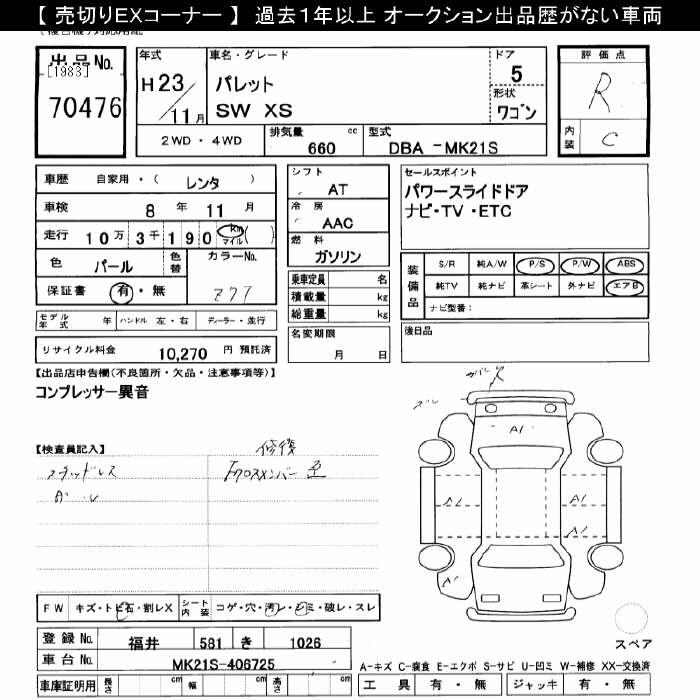 【 売切りEXコーナー 】 過去１年以上 オークション出品歴がない車両
出品No.
[1983]
70476
年式
H23/11月
車名・グレード
パレット
SW XS
ドア
5
形状
ワゴン
評価点
R
内装
C
2WD ・ 4WD
排気量 660 cc
型式 DBA －MK21S
車歴 自家用・( レンタ )
車検 8 年 11 月
走行 10万 3千190 km マイル ( )
色 パール 色替 カラーNo.
保証書 有・無 Z7T
モデル年式 年 ハンドル 左・右 ディーラー・並行
リサイクル料金 10,270 円 預託済
シフト
AT
冷房
AAC
燃料
ガソリン
乗車定員 名
積載量 kg
総重量 kg
名変期限
月 日
セールスポイント
パワースライドドア
ナビ・TV・ETC
装備品
S/R 純A/W P/S P/W ABS
純TV 純ナビ 革シート 外ナビ エアB
ナビ型番：
後日品
【出品店申告欄(不良箇所・欠品・注意事項等)】
コンプレッサー異音
【検査員記入】
修復
スタッドレス
FクロスメンバーX
ズレ
A1
A1
A1
A1
A1
FW キズ・トビ石・割レX
シート内装 コゲ・穴・汚レ・シミ・破レ・スレ
登録No. 福井 581 き 1026
車台No. MK21S-406725
車庫証明用 長さ cm 幅 cm 高さ cm
スペア
A-キズ C-腐食 E-エクボ S-サビ U-凹ミ W-補修 XX-交換済
工具 有・無 ジャッキ 有・無